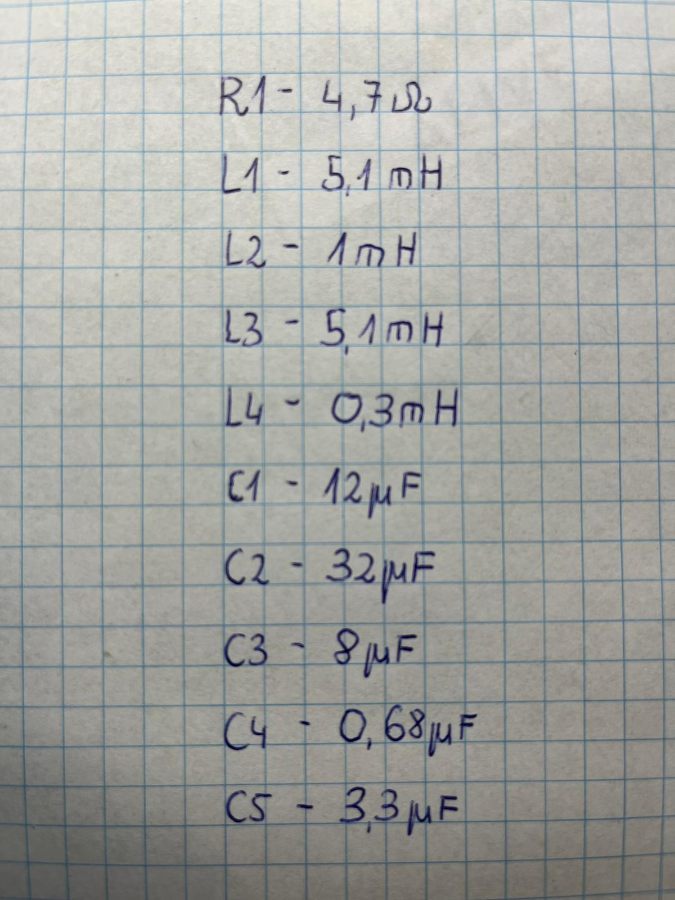 R1- 4,7Ω
L1 - 5,1mH
L2 - 1mH
L3 - 5,1mH
L4 - 0,3mH
C1 - 12μF
C2 - 32μF
C3 - 8μF
C4 - 0,68μF
C5 - 3,3μF